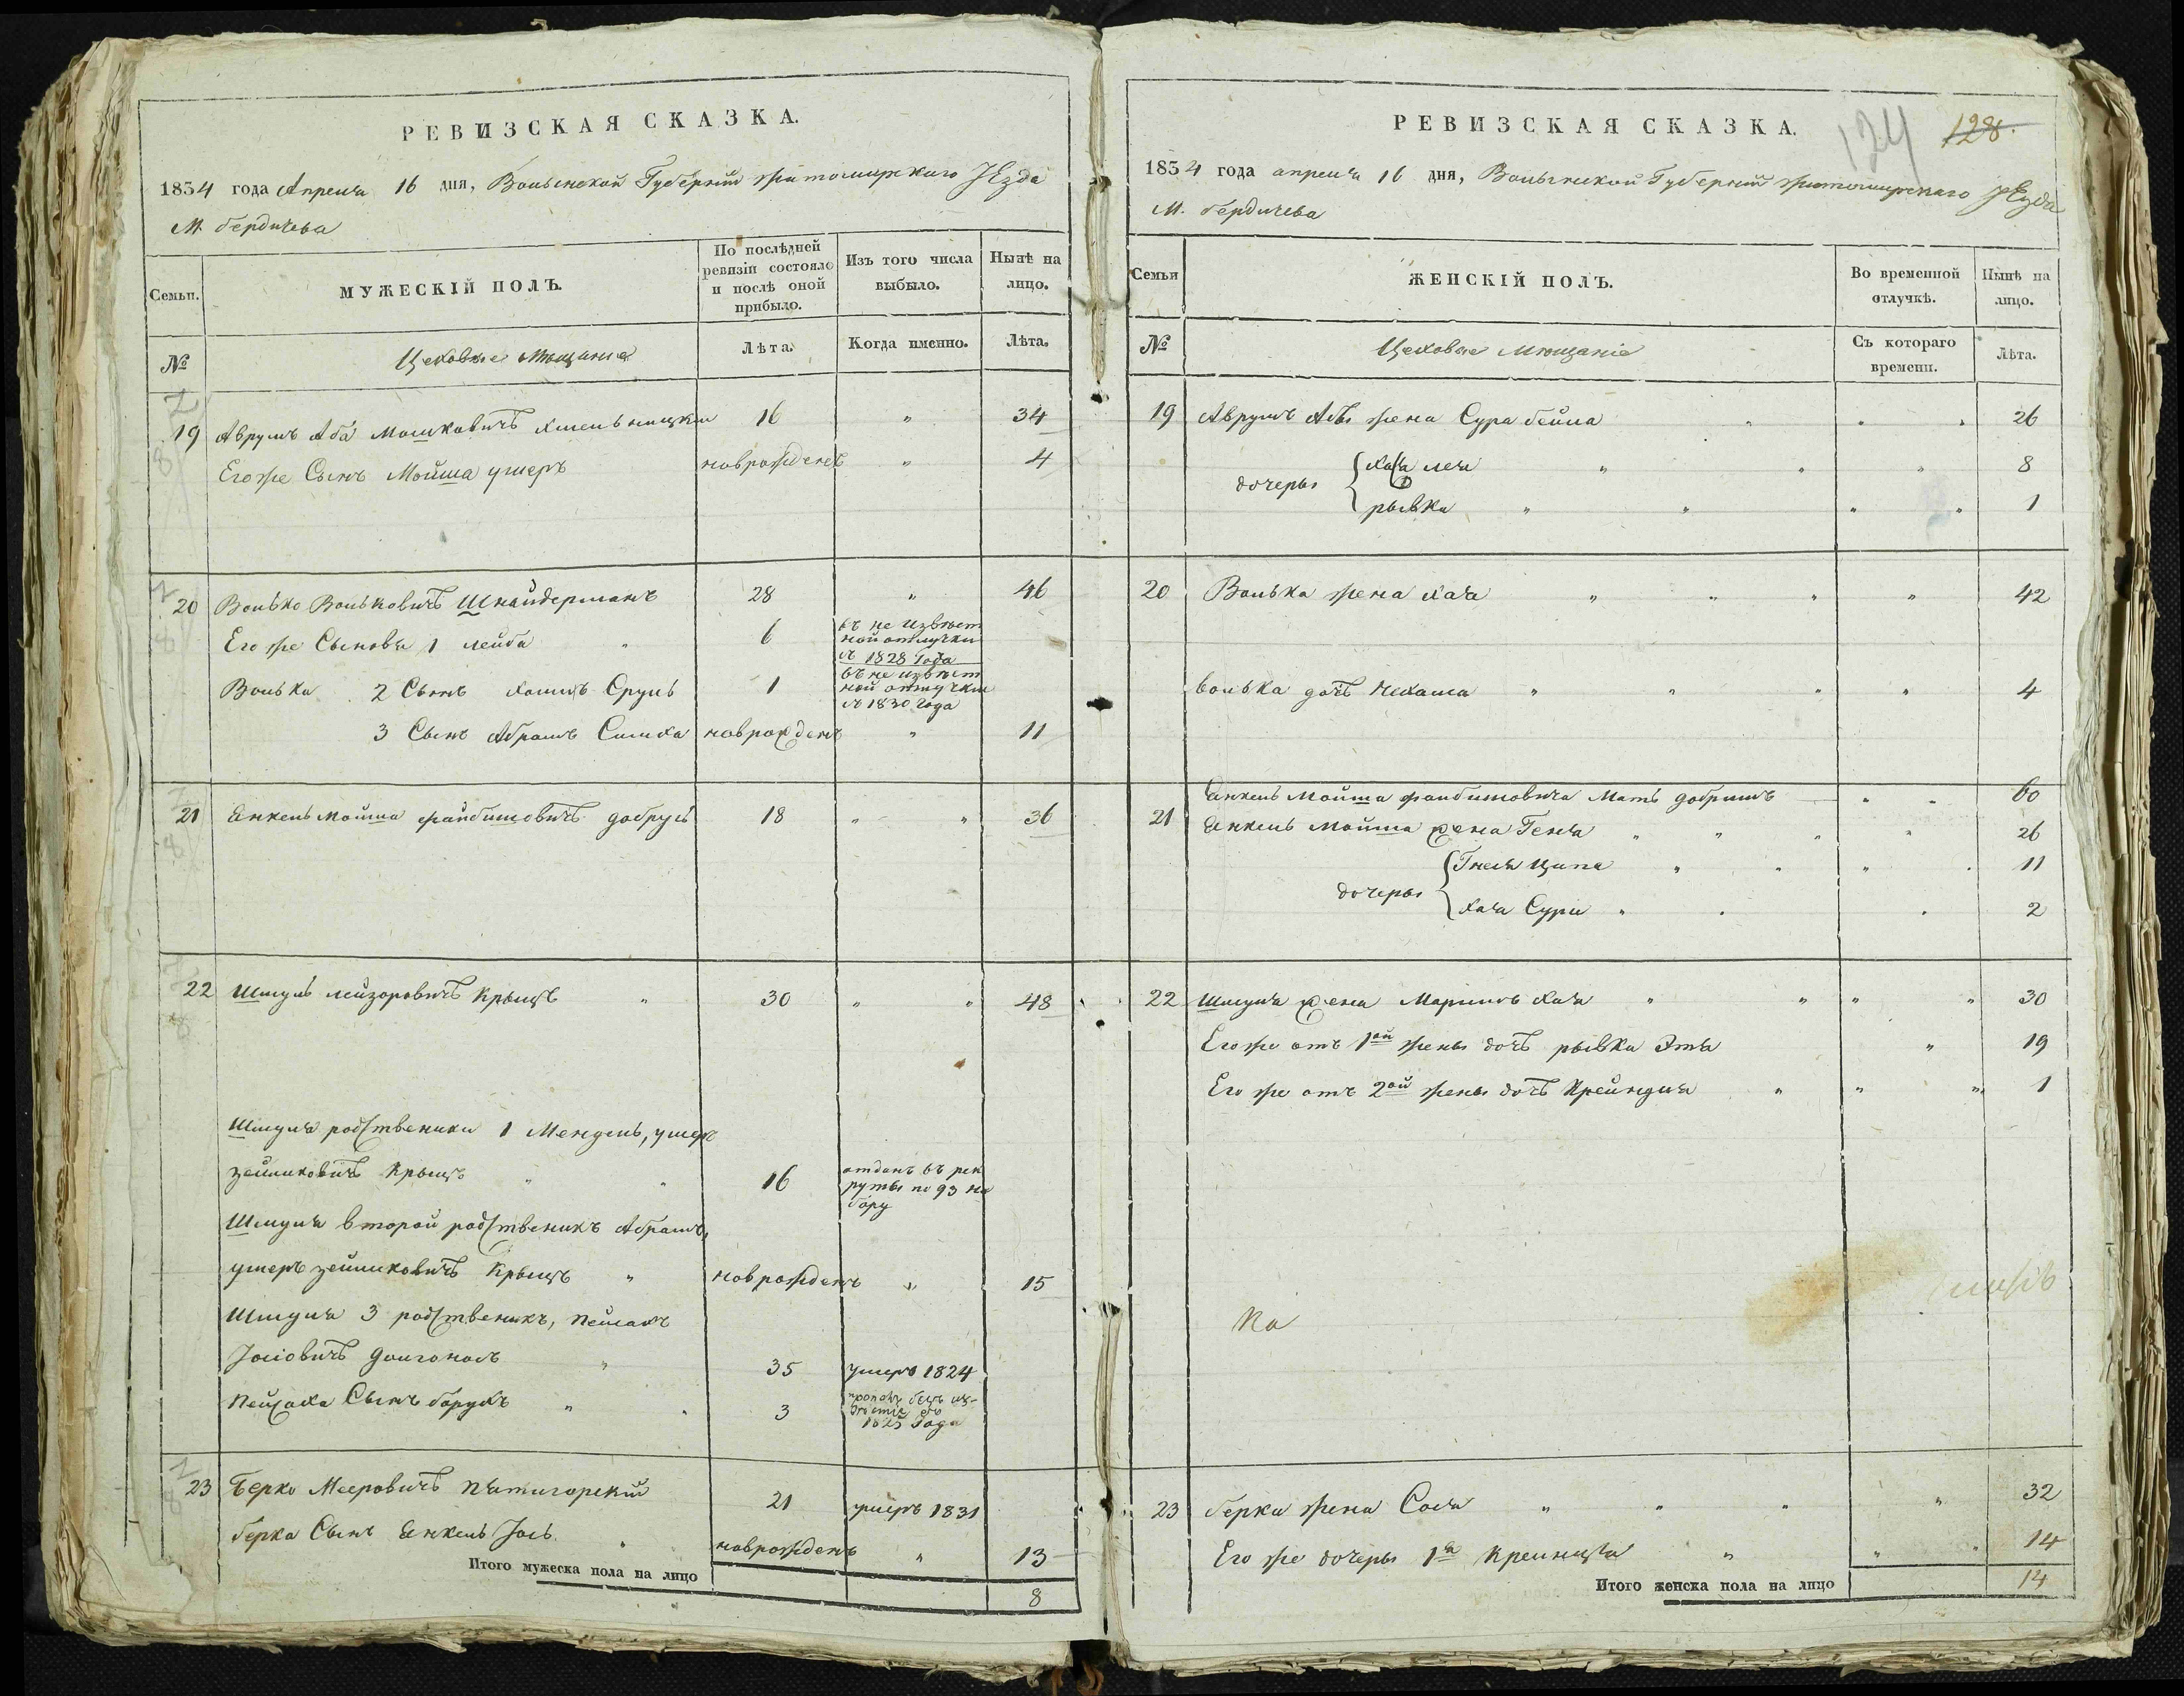 РЕВИЗСКАЯ СКАЗКА.
1834 года Апреля 16 дня, Волынской Губернии Житомирскаго УЕзда
М. бердичева
Семьи.
МУЖЕСКІЙ ПОЛЪ.
По послѣдней ревизіи состояло и послѣ оной прибыло.
Изъ того числа выбыло.
Нынѣ на лицо.
№
Цеховые Мещане
Лѣта.
Когда именно.
Лѣта.
19 Аврумъ Аба Мошковичъ хмельницкии 16 " 34
Его же Сынъ Мойша умеръ новрожденъ " 4
20 Волько Вольковичъ Шнайдерманъ 28 " 46
Его же Сыновья 1 лейба " 6 въ не извѣст
ной отлучки
съ 1828 Года
Волька 2 Сынъ хаимъ Сруль 1 въ не извѣст
ной отлучки
съ 1830 Года
3 Сынъ Абрамъ Симха новрожденъ " 11
21 Янкель мойша файбишовичъ добрусь 18 " " 36
22 Шмуль лейзоровичъ Крыцъ " 30 " " 48
Шмуля родственики 1 Мендель, умеръ
зейликовичъ Крыцъ " " 16 отданъ въ рек
руты по 93 на
бору
Шмуля второй родственикъ Абрамъ,
умеръ зейликовичъ Крыцъ " новрожденъ " 15
Шмуля 3 родственикъ, пейсахъ
Іосіовичъ долгоносъ " 35 умеръ 1824
пейсаха Сынъ борухъ " " 3
1825 Года
23 Берко Мееровичъ пятигорскій 21 умеръ 1831
берка Сынъ Янкель Іось " новрожденъ " 13
Итого мужеска пола на лицо 8
РЕВИЗСКАЯ СКАЗКА.
124 128.
1834 года апреля 16 дня, Волынской Губерніи Житомирскаго УЕзда
М. бердичева
Семьи
ЖЕНСКІЙ ПОЛЪ.
Во временной отлучкѣ.
Нынѣ на лицо.
№
Цеховые Мещаніе
Съ котораго времени.
Лѣта.
19 Аврумъ Абы жена Сура бейла " " " 26
дочеры { хая лея " " " 8
рывка " " " " 1
20 Волька жена хая " " " " 42
волька дочъ нехама " " " " 4
21 Янкель Мойша файбишовича Мать добришъ " " 60
Янкель мойша жена Геня " " " " 26
дочеры { Гнеся Ципа " " " " 11
хая Сури " " " 2
22 Шмуля жена Маримъ хая " " " " 30
Его же отъ 1ой жены дочъ рывка Этя " 19
Его же отъ 2ой жены дочъ Крейндля " " " 1
23 берки жена Сося " " " " 32
Его же дочеры 1я Крейнцля " " " 14
Итого женска пола на лицо 14